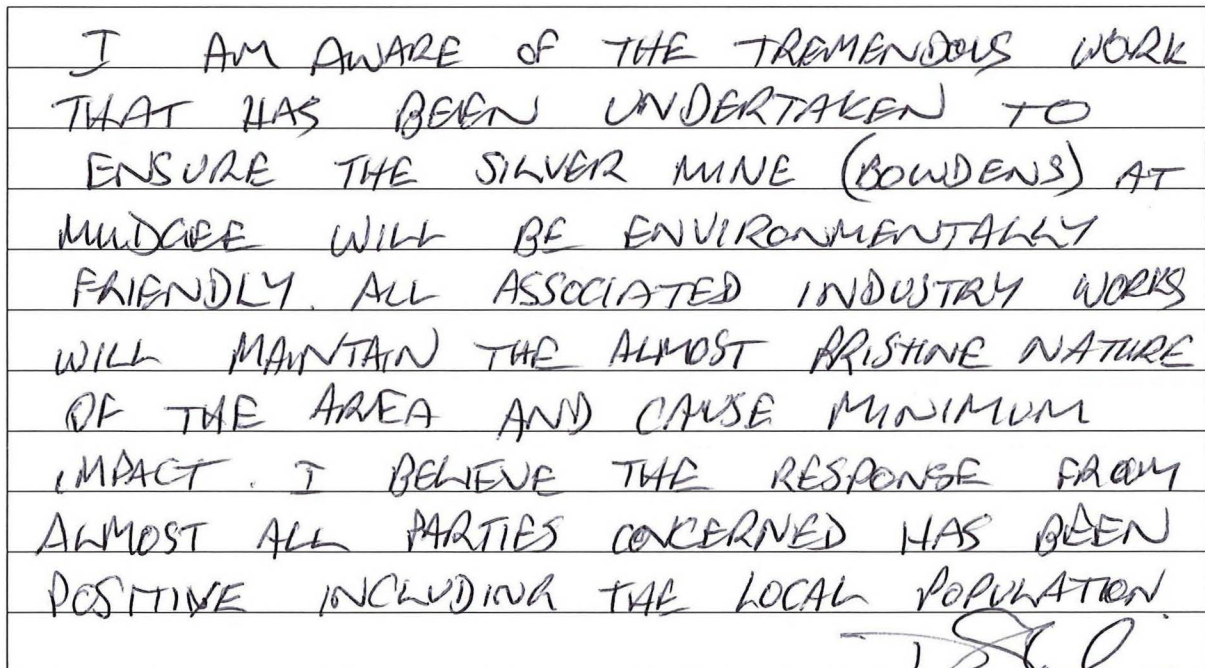 I AM AWARE OF THE TREMENDOUS WORK
THAT HAS BEEN UNDERTAKEN TO
ENSURE THE SILVER MINE (BOWDENS) AT
MUDGEE WILL BE ENVIRONMENTALLY
FRIENDLY. ALL ASSOCIATED INDUSTRY WORKS
WILL MAINTAIN THE ALMOST PRISTINE NATURE
OF THE AREA AND CAUSE MINIMUM
IMPACT. I BELIEVE THE RESPONSE FROM
ALMOST ALL PARTIES CONCERNED HAS BEEN
POSITIVE INCLUDING THE LOCAL POPULATION.